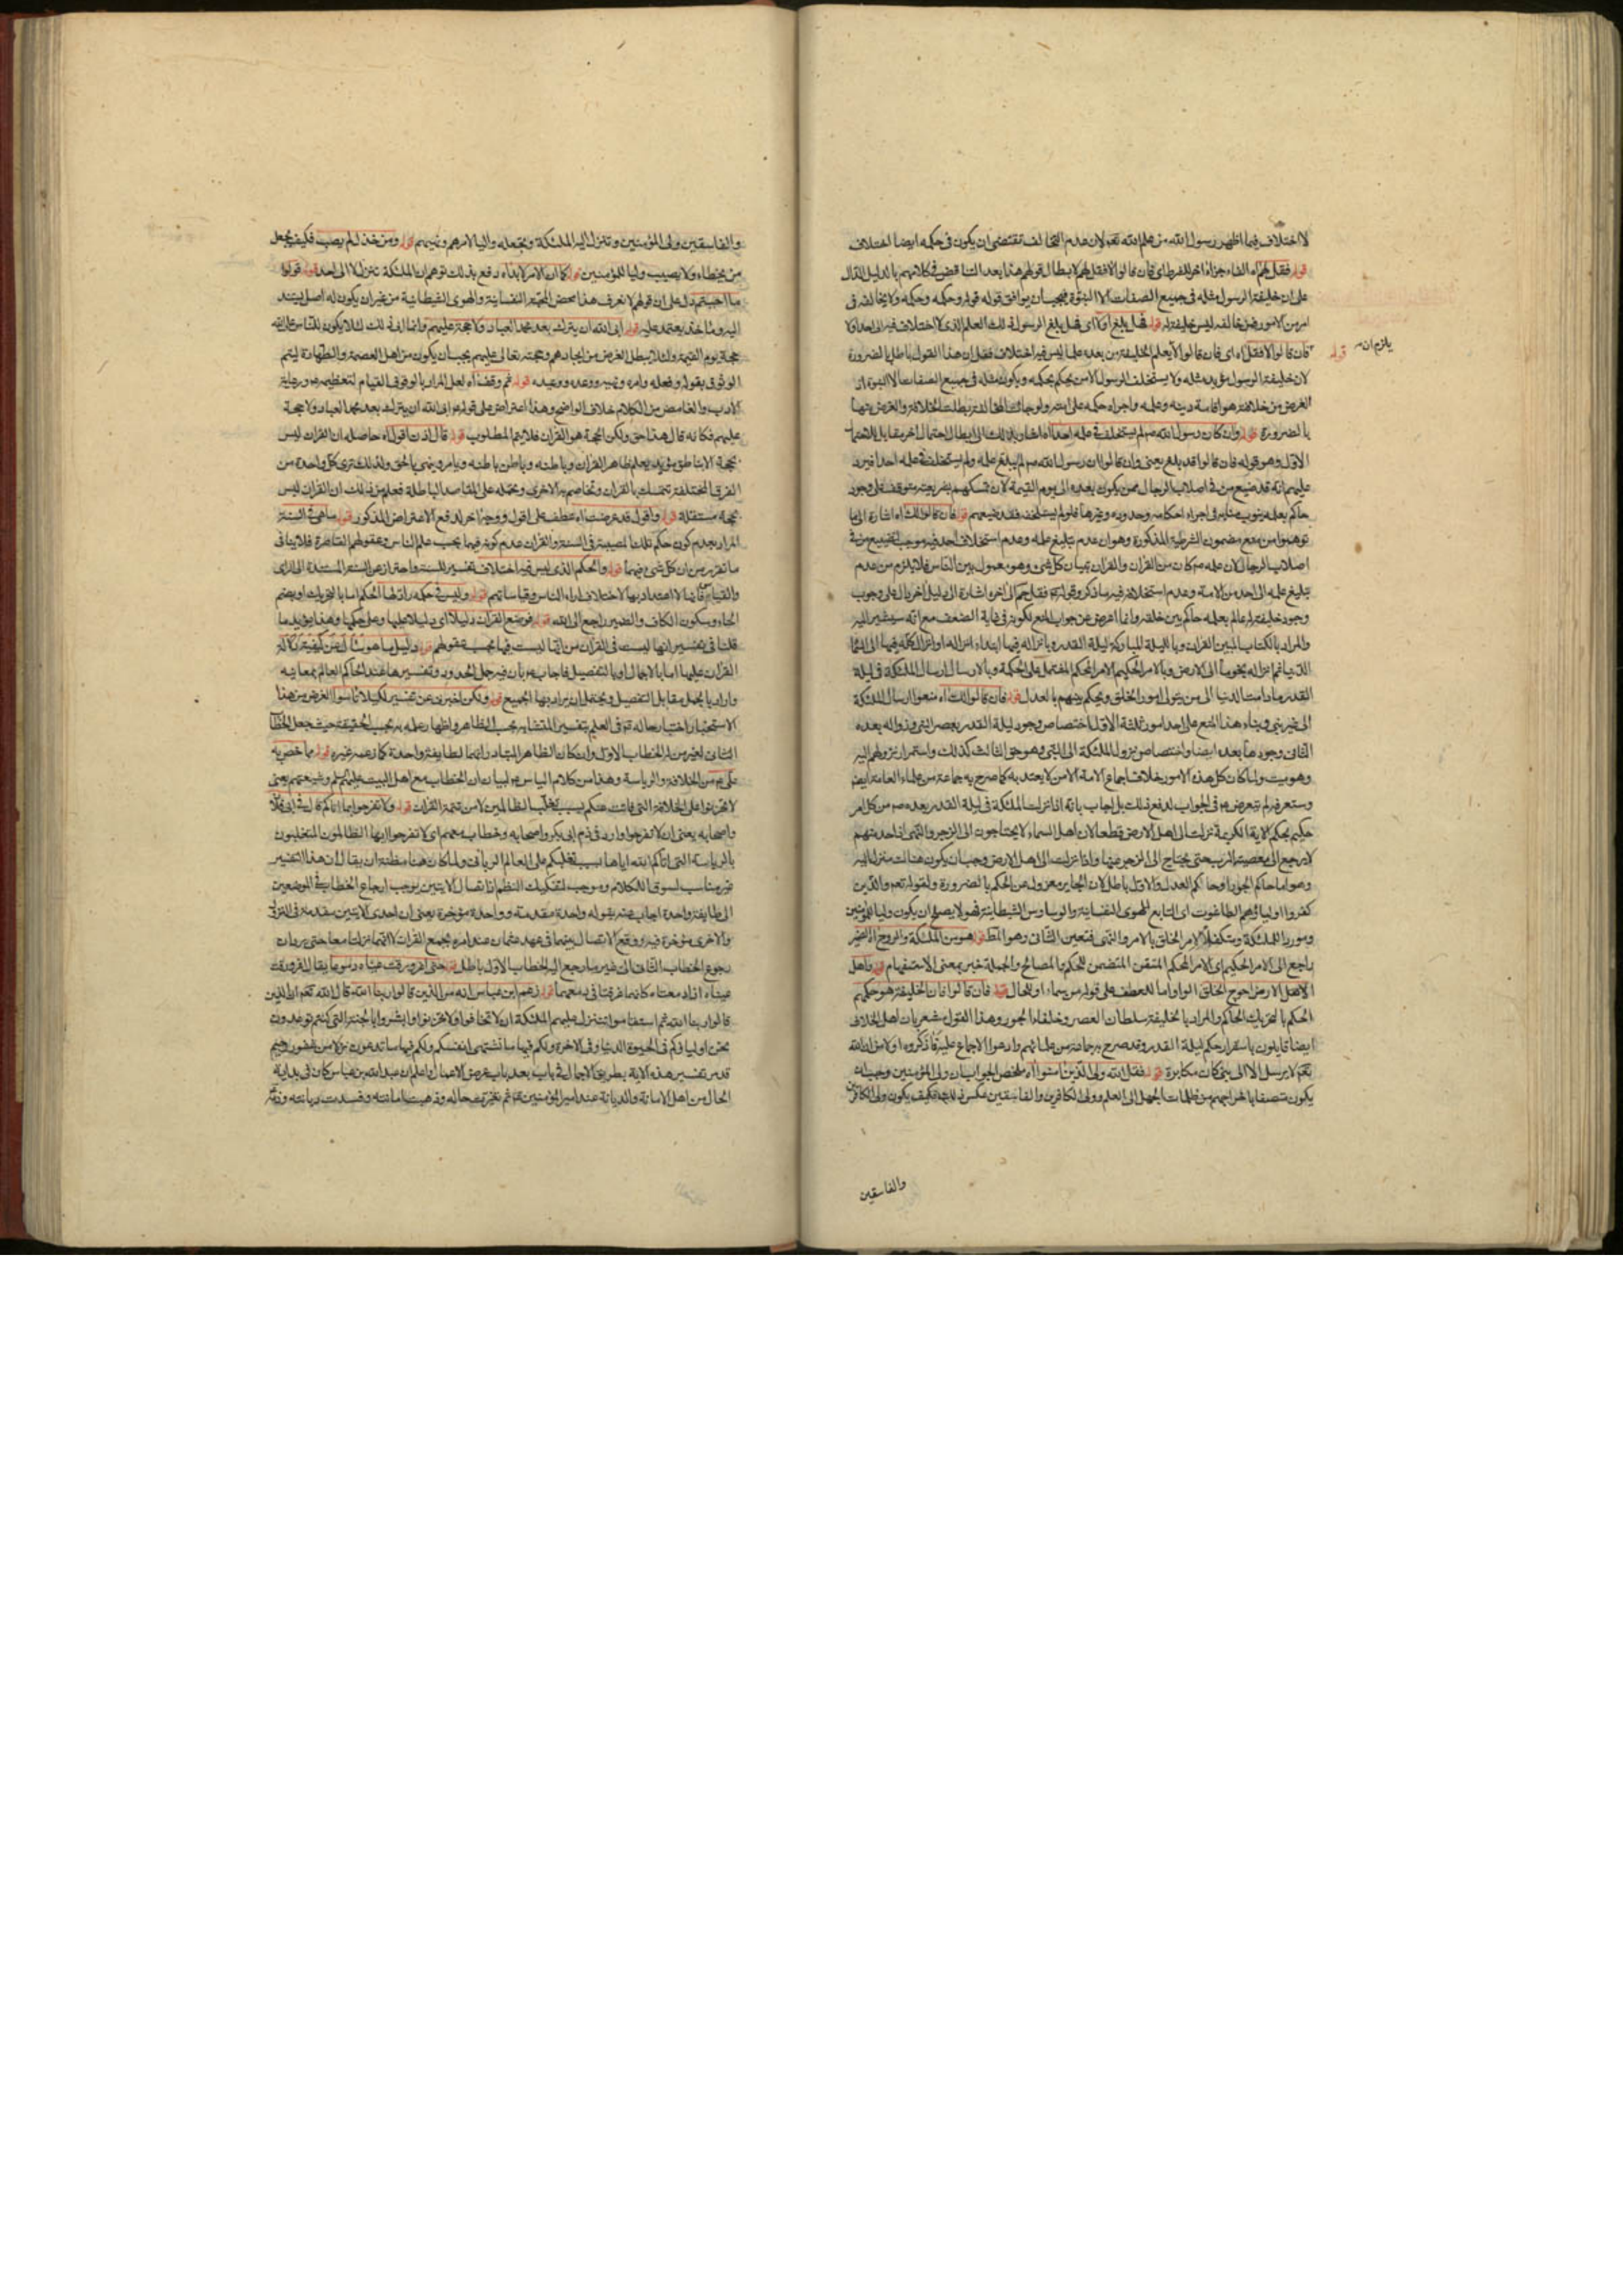 لا اختلاف فيما اظهر رسول الله من علم الله تعم لان عدم التخالف تقتضى ان يكون فى حكمه ايضا اختلاف
قوله فقل لهم اه الفاء جزاء اخر للشرط اى فان قالوا لا فقل لهم لابطال قولهم هذا بعد التناقض فى كلامهم بالدليل الدال
على ان خليفة الرسول مثله فى جميع الصفات الا النبوة فيجب ان يوافق قوله قوله وحكمه وحكمه ولا يخالفه فى
امر من الامور فمن خالفه ليس خليفة له قوله فهل بلغ او لا اى فهل بلغ الرسول ذلك العلم الذى لا اختلاف فيه الى احد اولا
يلزم ان
قوله فان قالوا لا فقل اه اى فان قالوا لا يعلم الخليفة من بعده علما ليس فيه اختلاف فقل ان هذا القول باطل بالضرورة
لان خليفة الرسول مؤيد مثله ولا يستخلف الرسول الا من يحكم بحكمه ويكون مثله فى جميع الصفات الا النبوة اذ
الغرض من خلافته هو اقامة دينه وعلمه واجراء حكمه على امته ولو جازت المخالفة بطلت الخلافة والغرض منها
بالضرورة قوله وان كان رسول الله صم لم يستخلف فى علمه احدا اه اشار بذلك الى ابطال احتمال اخر مقابل للاحتمال
الاول وهو قوله فان قالوا قد بلغ يعنى وان قالوا ان رسول الله صم لم يبلغ علمه ولم يستخلف فى علمه احدا فيرد
عليهم انه قد ضيع من فى اصلاب الرجال ممن يكون بعده الى يوم القيمة لان تمسكهم بشريعته متوقف على وجود
حاكم بعلمه ينوب منابه فى اجراء احكامه وحدوده وغيرها فلو لم يستخلف فقد ضيعهم قوله فان قالوا لك اه اشارة الى ما
توهموا من منع مضمون الشرطية المذكورة وهو ان عدم تبليغ علمه وعدم استخلاف احد فيه موجب لتضييع من فى
اصلاب الرجال لان علمه صم كان من القران والقران تبيان كل شئ وهو معمول بين الناس فلا يلزم من عدم
تبليغ علمه الى احد من الامة وعدم استخلافه فيه ما ذكر وقوله فقل حم الى اخره اشارة الى دليل اخر دال على وجوب
وجود خليفة له عالم بعلمه حاكم بين خلقه وانما اعرض عن جواب المنع لكونه فى غاية الضعف مع انه سيشير اليه
والمراد بالكتاب المبين القران وبالليلة المباركة ليلة القدر وبانزاله فيها ابتداء انزاله او انزال كله فيها الى السماء
الدنيا ثم انزاله نجوما الى الارض وبالامر الحكيم الامر المحكم المشتمل على الحكمة وبالارسال ارسال الملئكة فى ليلة
القدر ما دامت الدنيا الى من يتولى امور الخلق ويحكم بينهم بالعدل قوله فان قالوا لك اه منعوا ارسال الملئكة
الى غير نبى وبناء هذا المنع على احد امور ثلثة الاول اختصاص وجود ليلة القدر بعصر النبى وزواله بعده
الثانى وجودها بعده ايضا واختصاص نزول الملئكة الى النبى وهو حى الثالث كذلك واستمرار نزولهم اليه
وهو ميت ولما كان كل هذه الامور خلاف اجماع الامة الا من لا يعتد به كما صرح به جماعة من علماء العامة ايضا
وستعرفه لم يتعرض عم فى الجواب لدفع ذلك بل اجاب بانه اذا نزلت الملئكة فى ليلة القدر بعده صم من كل امر
حكيم بحكم الاية الكريمة نزلت الى اهل الارض قطعا لان اهل السماء لا يحتاجون الى الزجر والنهى اذ احد منهم
لا يرجع الى معصية الرب حتى يحتاج الى الزجر عنها واذا نزلت الى اهل الارض وجب ان يكون هناك من نزل اليه
وهو اما حاكم الجور او حاكم العدل والاول باطل لان الجاير معزول عن الحكم بالضرورة ولقوله تعم والذين
كفروا اولياؤهم الطاغوت اى التابع للهوى النفسانية والوساوس الشيطانية فهو لا يصلح ان يكون وليا للمؤمنين
وموردا للملئكة ومتكفلا لامر الخلق بالامر والنهى فتعين الثانى وهو المط قوله هو من الملئكة والروح الضمير
راجع الى الامر الحكيم اى الامر المحكم المتقن المتضمن للحكم والمصالح والجملة خبر بمعنى الاستفهام قوله واهل
الارض احوج الخلق الواو اما للعطف على قوله من سماء او للحال قوله فان قالوا فان الخليفة هو حكمهم
الحكم بالتحريك الحاكم والمراد بالخليفة سلطان العصر وخلفاء الجور وهذا القول مشعر بان اهل الخلاف
ايضا قايلون باستمرار حكم ليلة القدر وقد صرح به جماعة من علمائهم وادعوا الاجماع عليه فاذكروه اولا من ان الله
تعم لا يرسل الا الى نبى كان مكابرة قوله فقل الله ولى الذين امنوا اه ملخص الجواب ان ولى المؤمنين وجب ان
يكون متصفا باخراجهم من ظلمات الجهل الى العلم وولى الكافرين والفاسقين عكس ذلك فكيف يكون ولى الكافرين
والفاسقين
والفاسقين ولى المؤمنين وتنزل اليه الملئكة وتجعله واليا لامرهم ونهيهم قوله ومن خذل لم يصب فكيف يجعل
من يخطاء ولا يصيب وليا للمؤمنين قوله كما ان الامر لا بد اه دفع بذلك توهم ان الملئكة تنزل لا الى احد قوله قولوا
ما احببتم دل على ان قولهم لا نعرف هذا محض التشهى النفسانية والهوى الشيطانية من غير ان يكون له اصل يستند
اليه وماخذ يعتمد عليه قوله ابى الله ان يترك بعد محمد العباد ولا حجة عليهم وانما ابى ذلك لئلا يكون للناس على الله
حجة يوم القيمة ولئلا يبطل الغرض من ايجادهم وحجته تعالى عليهم يجب ان يكون من اهل العصمة والطهارة ليتم
الوثوق بقوله وفعله وامره ونهيه ووعده ووعيده قوله ثم وقف اه لعل المراد بالوقوف القيام لتعظيمه عم ورعاية
الادب والغامض من الكلام خلاف الواضح وهذا اعتراض على قوله عم ابى الله ان يترك بعد محمد العباد ولا حجة
عليهم فكانه قال هذا حق ولكن الحجة هو القران فلا يتم المطلوب قوله قال اذن اقول اه حاصله ان القران ليس
بحجة الا بناطق مؤيد يعلم ظاهر القران وباطنه وباطن باطنه ويامر وينهى بالحق ولذلك ترى كل واحدة من
الفرق المختلفة تتمسك بالقران وتخاصم به الاخرى وتحمله على المقاصد الباطلة فعلم من ذلك ان القران ليس
بحجة مستقلة قوله واقول قد عرضت اه عطف على اقول ووجه اخر لدفع الاعتراض المذكور قوله ما هى فى السنة
المراد بعدم كون حكم تلك المصيبة فى السنة والقران عدم كونه فيهما بحسب علم الناس وعقولهم القاصرة فلا ينافى
ما تقرر من ان كل شئ فيهما قوله والحكم الذى ليس فيه اختلاف تفسير للسنة واحتراز عن السنة المستندة الى الراى
والقياس فانها لا اعتداد بها لاختلاف اراء الناس وقياساتهم قوله وليس فى حكمه راد لها الحكم اما بالتحريك او بضم
الحاء وسكون الكاف والضمير راجع الى الله قوله فوضع القران دليلا اى دليلا عليها وعلى حكمها وهذا مؤيد ما
قلنا فى تفسير انها ليست فى القران من انها ليست فيها بحسب عقولهم قوله دليل ما هو سأل عن كيفية دلالة
القران عليها اما بالاجمال او بالتفصيل فاجاب عم بان فيه جمل الحدود وتفسيرها عند الحاكم العالم بمعانيه
واراد بالجمل مقابل التفصيل ويحتمل ان يراد بها الجميع قوله ولكن اخبرنى عن تفسير لكيلا تاسوا الغرض من هذا
الاستخبار اختبار حاله عم فى العلم بتفسير المتشابه بحسب الظاهر واظهار علمه به بحسب الحقيقة حيث جعل الخطاب
الثانى لغير من له الخطاب الاول وان كان الظاهر المتبادر انهما لطايفة واحدة كما زعمه غيره قوله مما خص به
على عم من الخلافة والرياسة وهذا من كلام الياس عم لبيان ان الخطاب مع اهل البيت عليهم السلم وشيعتهم يعنى
لا تحزنوا على الخلافة التى فاتت عنكم بسبب تغلب الظالمين لا من تتمة القران قوله ولا تفرحوا بما اتاكم قال فى ابى فلان
واصحابه يعنى ان لا تفرحوا وارد فى ذم ابى بكر واصحابه وخطاب معهم اى لا تفرحوا ايها الظالمون المتغلبون
بالرياسة التى اتاكم الله اياها بسبب تغلبكم على العالم الربانى ولما كان هنا مظنة ان يقال ان هذا التفسير
غير مناسب لسوق الكلام وموجب لتفكيك النظم اذ اتصال الايتين يوجب ارجاع الخطاب فى الموضعين
الى طايفة واحدة اجاب عنه بقوله واحدة مقدمة وواحدة مؤخرة يعنى ان احدى الايتين مقدمة فى النزول
والاخرى مؤخرة فيه ووقع الاتصال بينهما فى عهد عثمان عند امره بجمع القران لا انهما نزلتا معا حتى يرد ان
رجوع الخطاب الثانى الى غير ما رجع اليه الخطاب الاول باطل قوله حتى اغرورقت عيناه دموعا يقال اغرورقت
عيناه اذا دمعتاه كانها غرقتا فى دمعهما قوله زعم ابن عباس انه من الذين قالوا ربنا الله قال الله تعم ان الذين
قالوا ربنا الله ثم استقاموا تتنزل عليهم الملئكة ان لا تخافوا ولا تحزنوا وابشروا بالجنة التى كنتم توعدون
نحن اولياؤكم فى الحيوة الدنيا وفى الاخرة ولكم فيها ما تشتهى انفسكم ولكم فيها ما تدعون نزلا من غفور رحيم
قد مر تفسير هذه الاية بطريق الاجمال فى باب بعد باب عرض الاعمال واعلم ان عبد الله بن عباس كان فى بداية
الحال من اهل الامانة والديانة عند امير المؤمنين عم ثم تغيرت حاله وذهبت امانته وفسدت ديانته